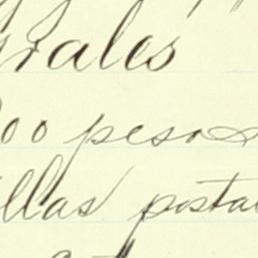 rales
00 pesos
llas posta